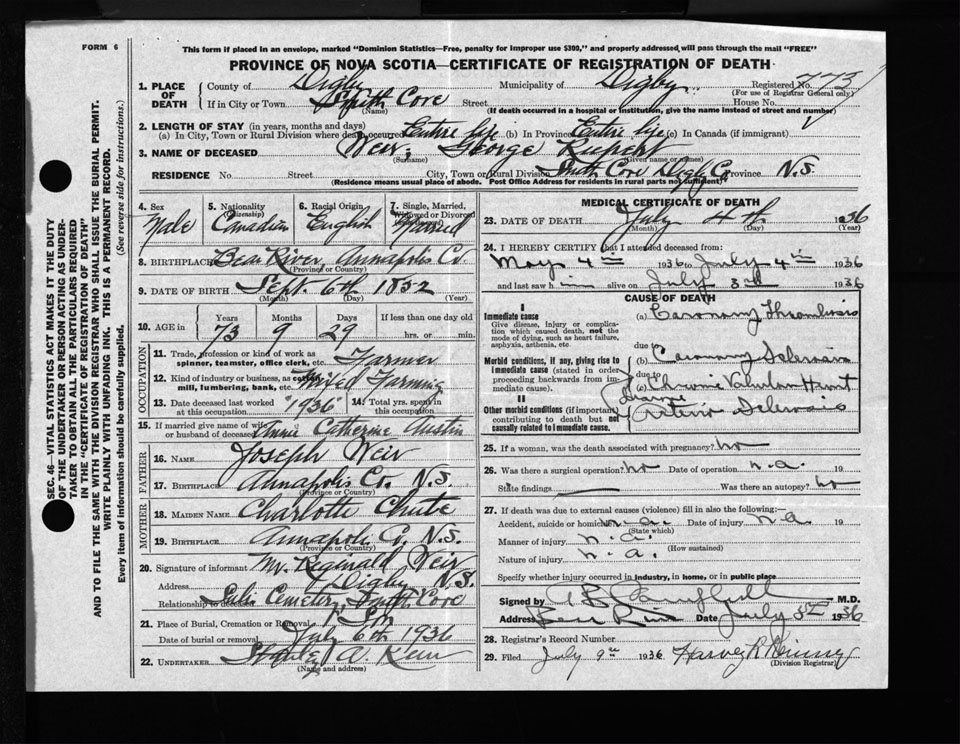 FORM 6
This form if placed in an envelope, marked "Dominion Statistics—Free, penalty for improper use $300," and properly addressed, will pass through the mail "FREE"
PROVINCE OF NOVA SCOTIA—CERTIFICATE OF REGISTRATION OF DEATH
1. PLACE OF DEATH County of Digby Municipality of Digby Registered No. 773
(For use of Registrar General only)
If in City or Town Smith Cove Street House No.
(Name) (If death occurred in a hospital or institution, give name instead of street and number)
2. LENGTH OF STAY (in years, months and days)
(a) In City, Town or Rural Division where death occurred Entire life (b) In Province Entire life (c) In Canada (if immigrant)
3. NAME OF DECEASED Weir, George Rupert
(Surname) (Given name or names)
RESIDENCE No. Street City, Town or Rural Division Smith Cove Digby Co. Province N.S.
(Residence means usual place of abode. Post Office Address for residents in rural parts not sufficient)
4. Sex Male
5. Nationality (Citizenship) Canadian
6. Racial Origin English
7. Single, Married, Widowed or Divorced Married
8. BIRTHPLACE Bear River, Annapolis Co.
(Province or Country)
9. DATE OF BIRTH Sept. 6th 1852
(Month) (Day) (Year)
10. AGE in Years Months Days If less than one day old
73 9 29 hrs. or min.
OCCUPATION
11. Trade, profession or kind of work as spinner, teamster, office clerk, etc. Farmer
12. Kind of industry or business, as cotton mill, lumbering, bank, etc. Mixed Farming
13. Date deceased last worked at this occupation "1936" 14. Total yrs. spent in this occupation
15. If married give name of wife or husband of deceased Annie Catherine Austin
FATHER
16. Name Joseph Weir
17. Birthplace Annapolis Co. N.S.
(Province or Country)
MOTHER
18. Maiden Name Charlotte Chute
19. Birthplace Annapolis Co. N.S.
(Province or Country)
20. Signature of informant Mr. Reginald Weir
Address Digby N.S.
Relationship to deceased Son
21. Place of Burial, Cremation or Removal Cemetery, Smith Cove
Date of burial or removal July 6th 1936
22. UNDERTAKER A.
(Name and address)
MEDICAL CERTIFICATE OF DEATH
23. DATE OF DEATH July 4th 1936
(Month) (Day) (Year)
24. I HEREBY CERTIFY that I attended deceased from:
May 4th 1936 to July 4th 1936
and last saw him alive on July 3rd 1936
CAUSE OF DEATH
I
Immediate cause
Give disease, injury or complication which caused death, not the mode of dying, such as heart failure, asphyxia, asthenia, etc.
(a) Coronary Thrombosis
due to
Morbid conditions, if any, giving rise to immediate cause (stated in order proceeding backwards from immediate cause).
(b) Coronary Sclerosis
due to
(c) Chronic Valvular Heart
disease
II
Other morbid conditions (if important) contributing to death but not causally related to immediate cause.
Arterio Sclerosis
25. If a woman, was the death associated with pregnancy? no
26. Was there a surgical operation? no Date of operation n.a. 19
State findings Was there an autopsy? no
27. If death was due to external causes (violence) fill in also the following:—
Accident, suicide or homicide n.a. Date of injury n.a. 19
(State which)
Manner of injury n.a.
(How sustained)
Nature of injury n.a.
Specify whether injury occurred in industry, in home, or in public place
Signed by Campbell M.D.
Address Bear River Date July 1936
28. Registrar's Record Number
29. Filed July 9th 1936 Harvey R
(Division Registrar)
SEC. 46—VITAL STATISTICS ACT MAKES IT THE DUTY
OF THE UNDERTAKER OR PERSON ACTING AS UNDERTAKER TO OBTAIN ALL THE PARTICULARS REQUIRED
IN THE "CERTIFICATE OF REGISTRATION OF DEATH"
AND TO FILE THE SAME WITH THE DIVISION REGISTRAR WHO SHALL ISSUE THE BURIAL PERMIT.
WRITE PLAINLY WITH UNFADING INK. THIS IS A PERMANENT RECORD.
Every item of information should be carefully supplied. (See reverse side for instructions.)